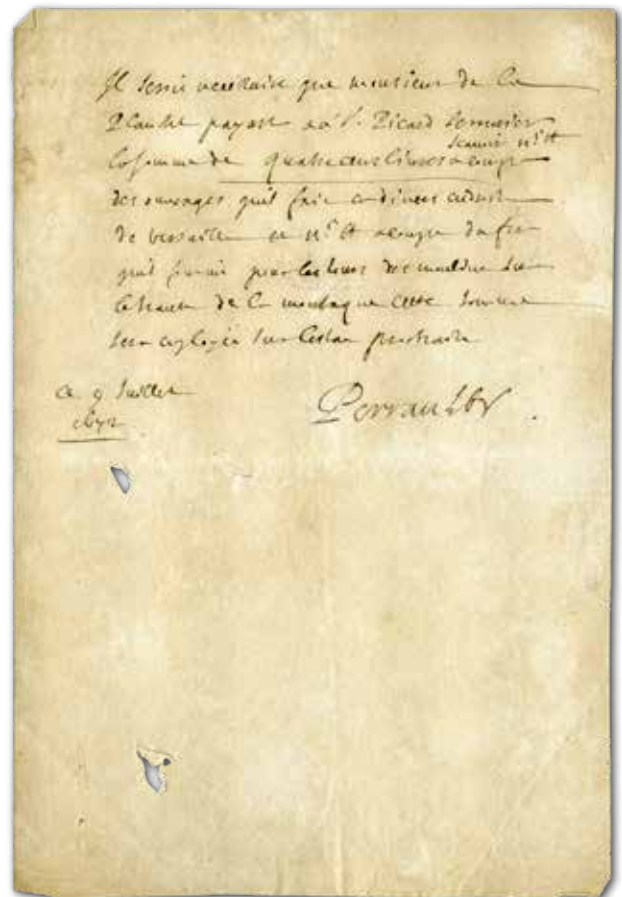 Il seroit necessaire que monsieur de la
Planche payast au Sr. Picard serrurier
scavoir
la somme de quatre cens livres acompte
des ouvrages quil fait en divers endroits
de versaille et acompte du fer
quil fournit pour les tours des moulins sur
le haut de la montagne cette somme
sera employée sur lestat
Ce 9 Juillet
Perrault